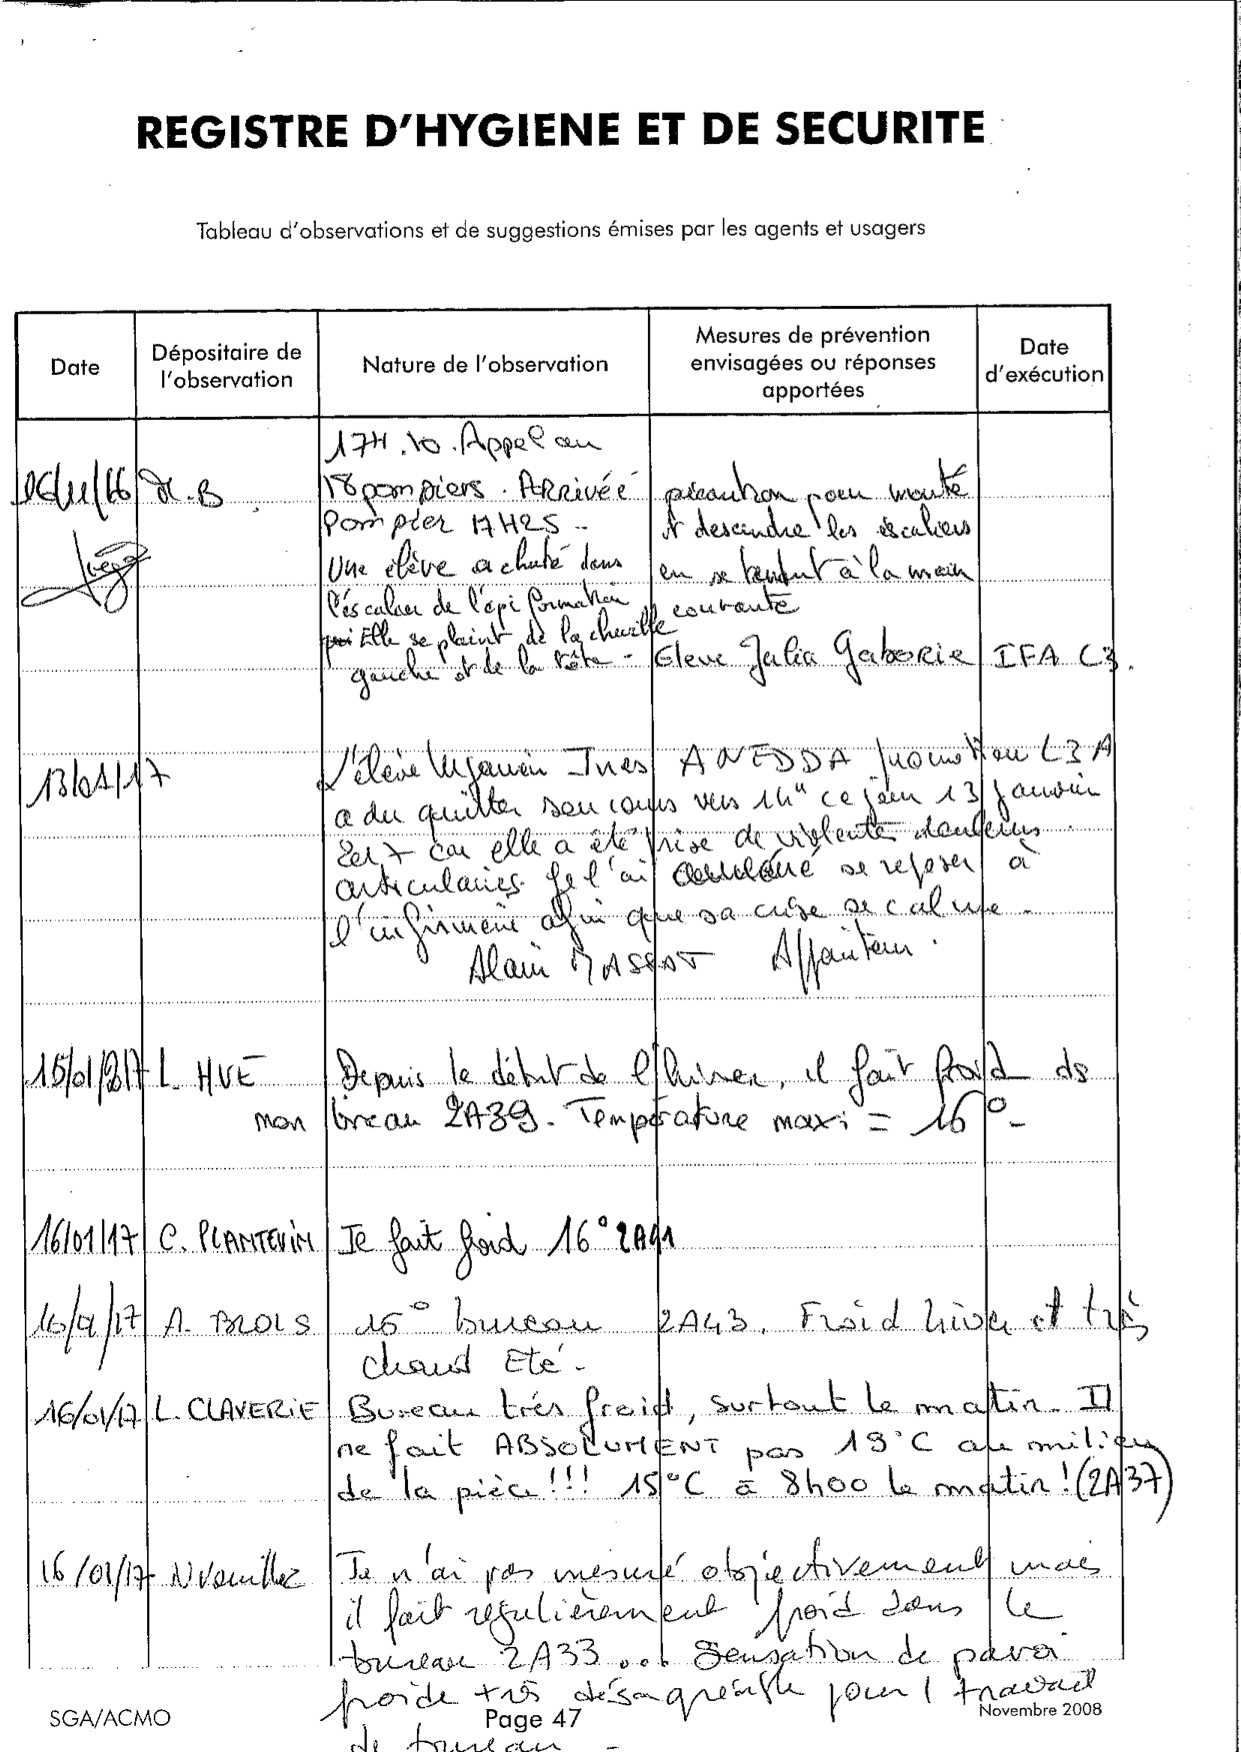 REGISTRE D'HYGIENE ET DE SECURITE
Tableau d'observations et de suggestions émises par les agents et usagers
Date
Dépositaire de l'observation
Nature de l'observation
Mesures de prévention envisagées ou réponses apportées
Date d'exécution
17H.10. Appel au
.B
18 pompiers. ARRivée
Pompier 17H25 -
Une élève a chuté dans
l'éscalier de l'épi formation
Elle se plaint de la cheville
gauche et de la tête -
précaution pour monté
et descendre les éscaliers
en se tendut à la main
courante
Eleve Julia Gaborie IFA C3.
13/01/17
L'élève Ines ANEDDA promotion L3A
a du quitter son cours vers 14h ce jour 13 janvier
2017 car elle a été prise de violente douleurs
articulaires. Je l'ai se reposer à
l'infirmerie afin que sa crise se calme.
Alain MASSAT Appariteur.
15/01/2017 L. HUE Depuis le début de l'hiver, il fait froid ds
mon bureau 2A39. Température maxi = 16° -
16/01/17 C. PLANTEVIN Il fait froid 16° 2A41
16/01/17 A. BLOIS 15° bureau 2A43. Froid hiver et très
chaud Eté -
16/01/17 L. CLAVERIE Bureau très froid, surtout le matin. Il
ne fait ABSOLUMENT pas 19°C au milieu
de la pièce !!! 15°C à 8h00 le matin ! (2A37)
16/01/17 Je n'ai pas mesuré objectivement mais
il fait régulièrement froid dans le
bureau 2A33... Sensation de paroi
froide très désagréable pour l travail
de bureau -
SGA/ACMO
Page 47
Novembre 2008